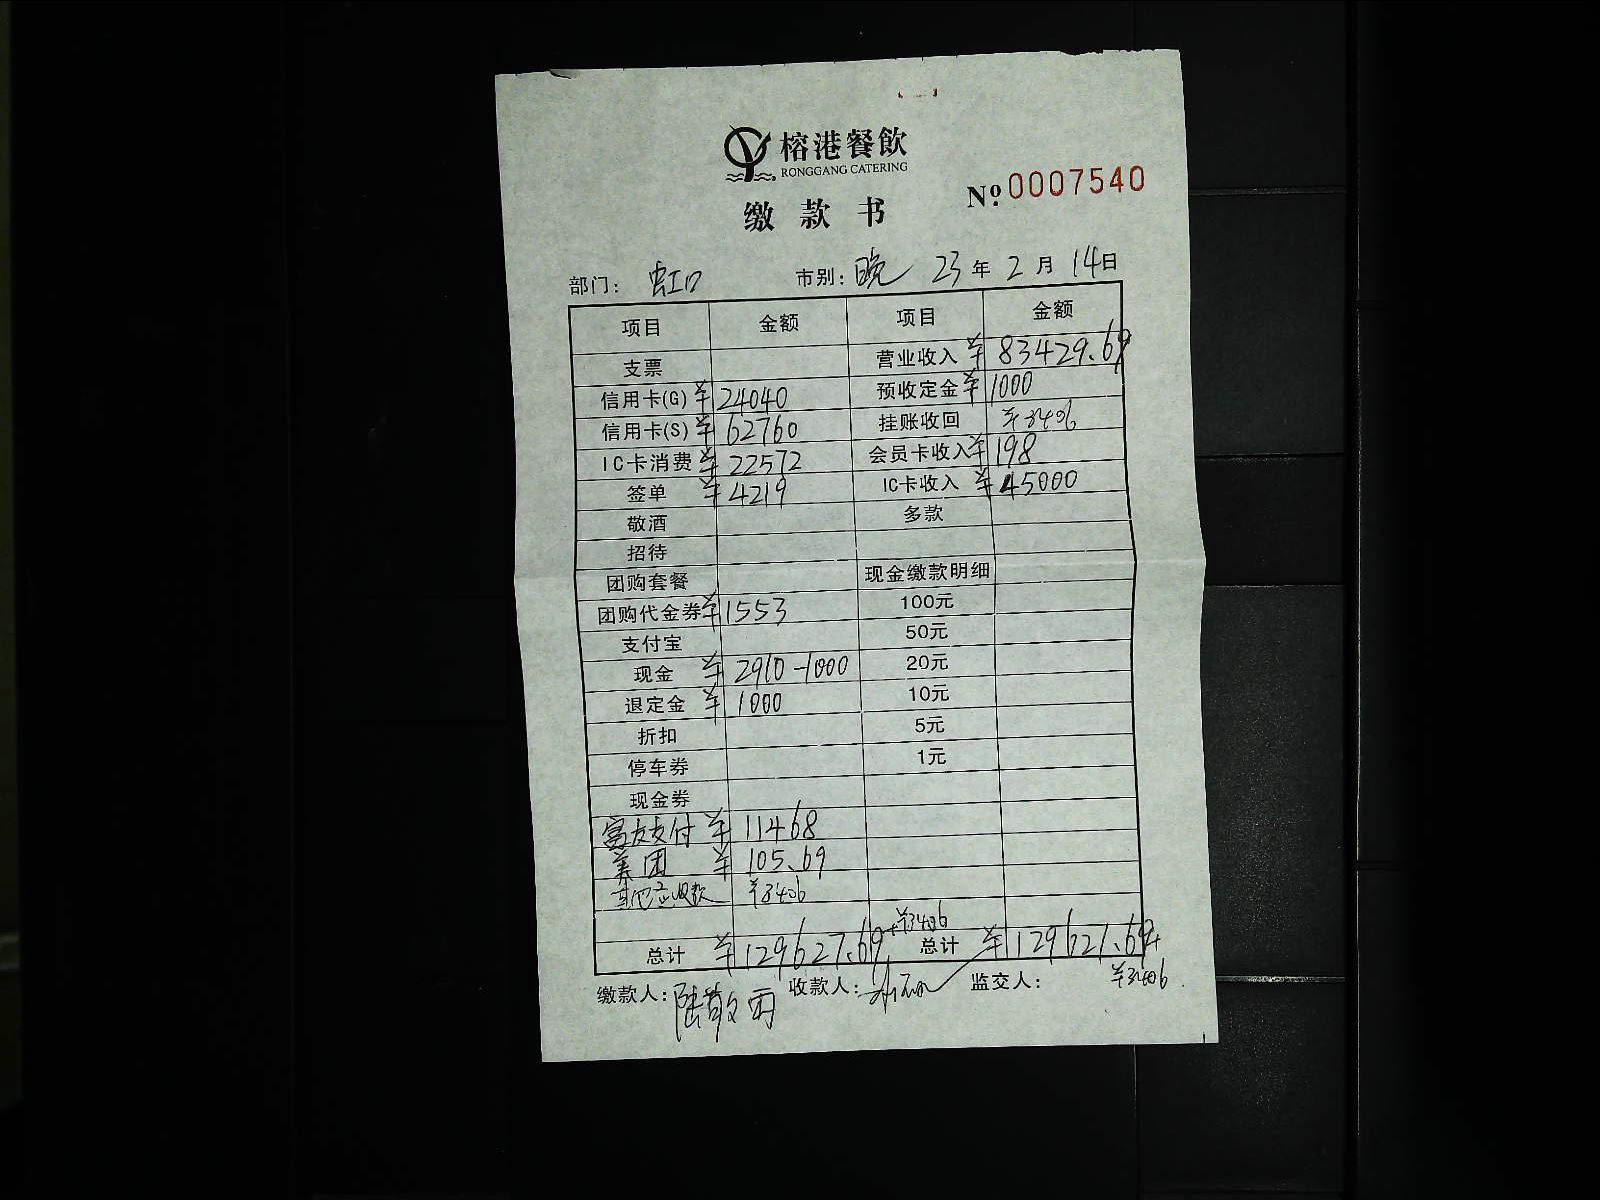 榕港餐飲
RONGGANG CATERING
No.0007540
缴款书
部门: 虹口 市别: 晚 23年2月14日
项目 金额 项目 金额
支票 营业收入 ¥83429.69
信用卡(G) ¥24040 预收定金 ¥1000
信用卡(S) ¥62760 挂账收回 ¥3406
IC卡消费 ¥22572 会员卡收入 ¥198
签单 ¥4219 IC卡收入 ¥45000
敬酒 多款
招待
团购套餐 现金缴款明细
团购代金券 ¥1553 100元
支付宝 50元
现金 ¥2910-1000 20元
退定金 ¥1000 10元
折扣 5元
停车券 1元
现金券
富友支付 ¥11468
美团 ¥105.69
其他应收款 ¥3406
总计 ¥129627.69+¥3406 总计 ¥129627.69+
¥3406
缴款人: 陆敬雨 收款人: 监交人: